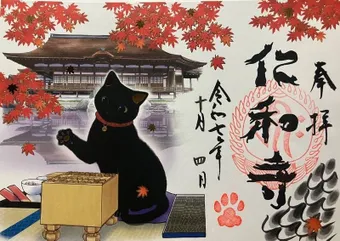 奉拝
仁和寺
令和七年
十月四日